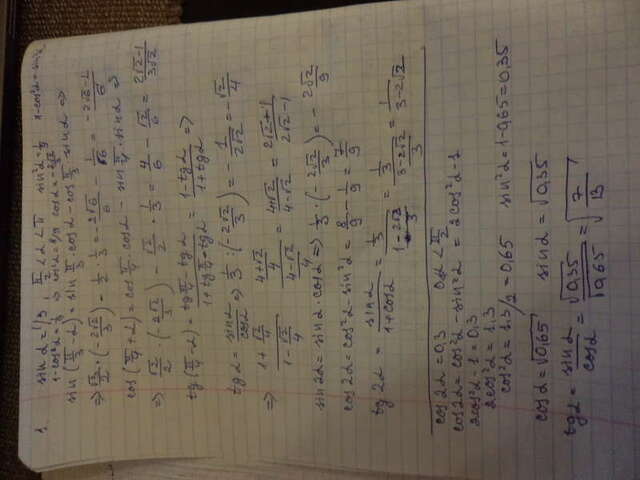 1. sin α = 1/3 π/2 < α < π sin²α = 1/9 1 - cos²α = sin²α
1 - cos²α = 1/9 ⇒ cos²α = 8/9 cos α = -2√2/3
sin(π/3 - α) = sin π/3 cos α - cos π/3 sin α ⇒
⇒ √3/2 · (-2√2/3) - 1/2 · 1/3 = -2√6/6 - 1/6 = -2√6-1/6
cos(π/4 + α) = cos π/4 · cos α - sin π/4 · sin α ⇒
⇒ √2/2 · (-2√2/3) - √2/2 · 1/3 = -4/6 - √2/6 =
tg(π/4 - α) = tg π/4 - tg α / 1 + tg π/4 · tg α = 1 - tg α / 1 + tg α ⇒
tg α = sin α / cos α ⇒ 1/3 : (-2√2/3) = - 1/2√2 = - √2/4
⇒ 1 + √2/4 / 1 - √2/4 = 4+√2/4 / 4-√2/4 = 4+√2 / 4-√2 = 2√2+1 / 2√2-1
sin 2α = sin α · cos α ⇒ 1/3 · (-2√2/3) = - 2√2/9
cos 2α = cos²α - sin²α = 8/9 - 1/9 = 7/9
tg 2α = sin α / 1 + cos α = 1/3 / 1 - 2√2/3 = 1/3 / 3-2√2/3 = 1 / 3-2√2
cos 2α = 0,3 0 < α < π/2
cos 2α = cos²α - sin²α = 2cos²α - 1
2cos²α - 1 = 0,3
2cos²α = 1,3
cos²α = 1,3/2 = 0,65 sin²α = 1 - 0,65 = 0,35
cos α = √0,65 sin α = √0,35
tg α = sin α / cos α = √0,35 / √0,65 = √7/13